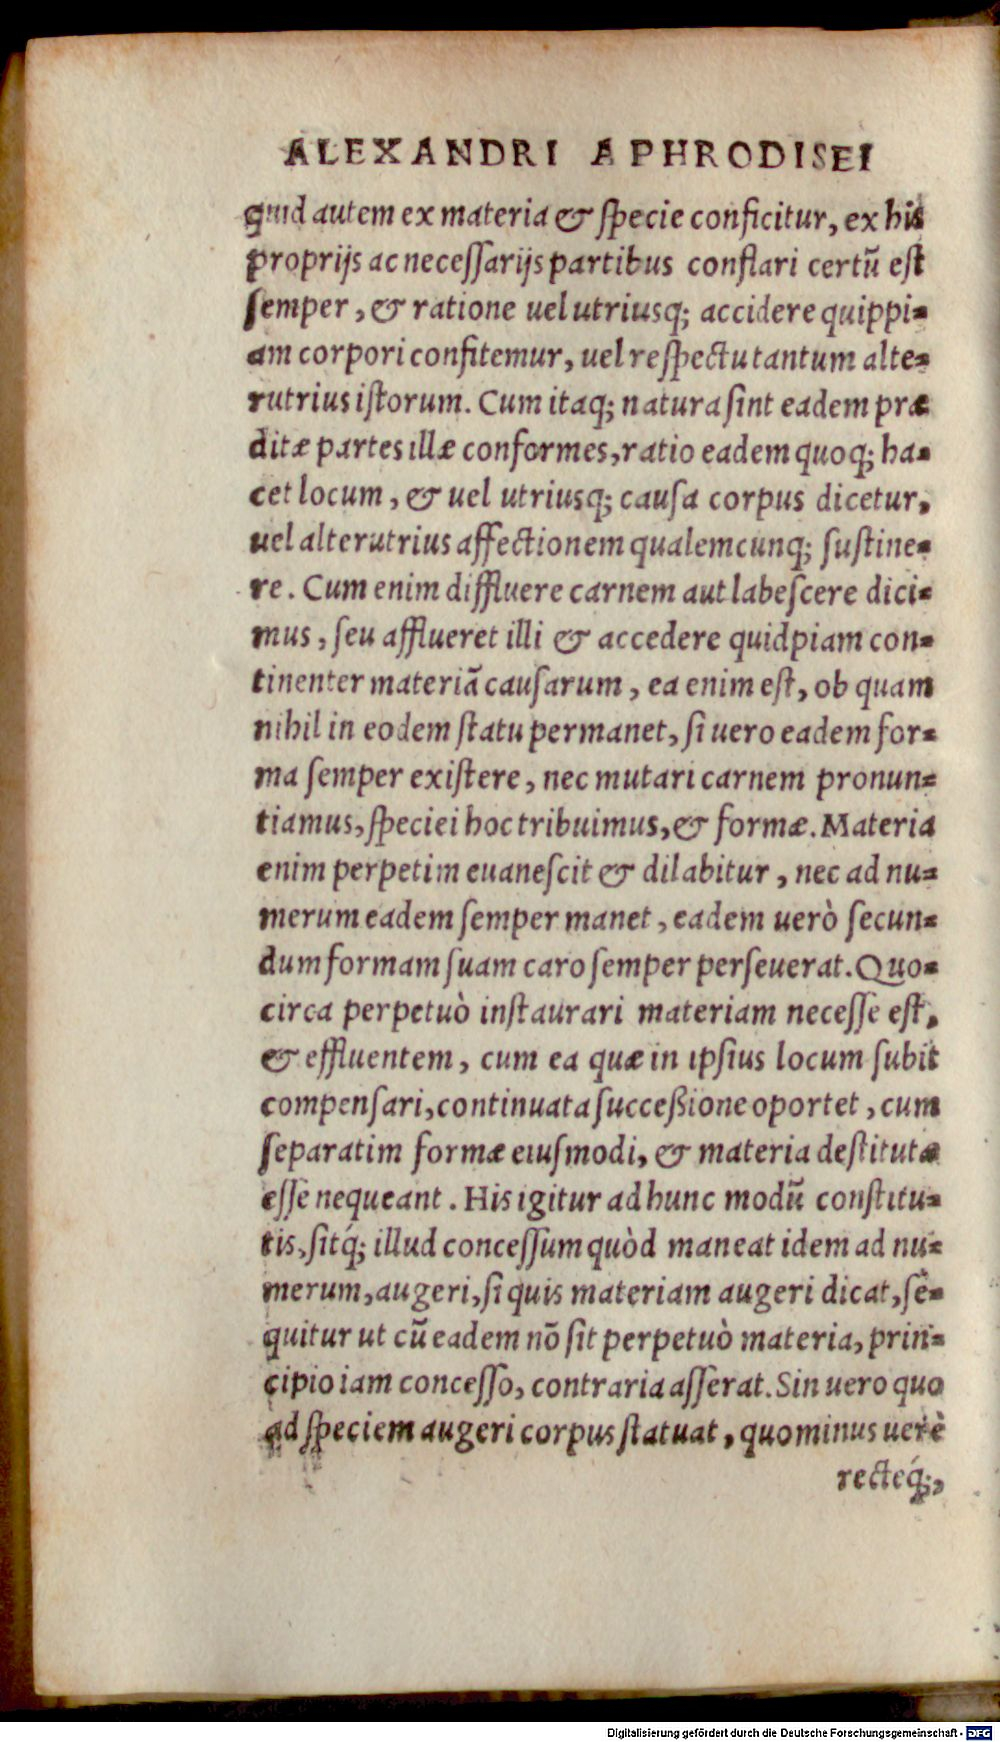 ALEXANDRI APHRODISEI
quid autem ex materia & ſpecie conficitur, ex his
proprijs ac neceſſarijs partibus conflari certũ eſt
ſemper, & ratione uel utriusq; accidere quippi-
am corpori confitemur, uel reſpectu tantum alte-
rutrius iſtorum. Cum itaq; natura ſint eadem præ
ditæ partes illæ conformes, ratio eadem quoq; ha-
cet locum, & uel utriusq; cauſa corpus dicetur,
uel alterutrius affectionem qualemcunq; ſuſtine-
re. Cum enim diffluere carnem aut labeſcere dici-
mus, ſeu afflueret illi & accedere quidpiam con-
tinenter materiã cauſarum, ea enim eſt, ob quam
nihil in eodem ſtatu permanet, ſi uero eadem for-
ma ſemper exiſtere, nec mutari carnem pronun-
tiamus, ſpeciei hoc tribuimus, & formæ. Materia
enim perpetim euaneſcit & dilabitur, nec ad nu-
merum eadem ſemper manet, eadem uerò ſecun-
dum formam ſuam caro ſemper perſeuerat. Quo-
circa perpetuò inſtaurari materiam neceſſe eſt,
& effluentem, cum ea quæ in ipſius locum ſubit
compenſari, continuata ſucceßione oportet, cum
ſeparatim formæ eiuſmodi, & materia deſtitutæ
eſſe nequeant. His igitur ad hunc modũ conſtitu-
tis, ſitq́; illud conceſſum quòd maneat idem ad nu-
merum, augeri, ſi quis materiam augeri dicat, ſe-
quitur ut cũ eadem nõ ſit perpetuò materia, prin-
cipio iam conceſſo, contraria aſſerat. Sin uero quo
ad ſpeciem augeri corpus ſtatuat, quominus uerè
recteq́;,
Digitalisierung gefördert durch die Deutsche Forschungsgemeinschaft - DFG